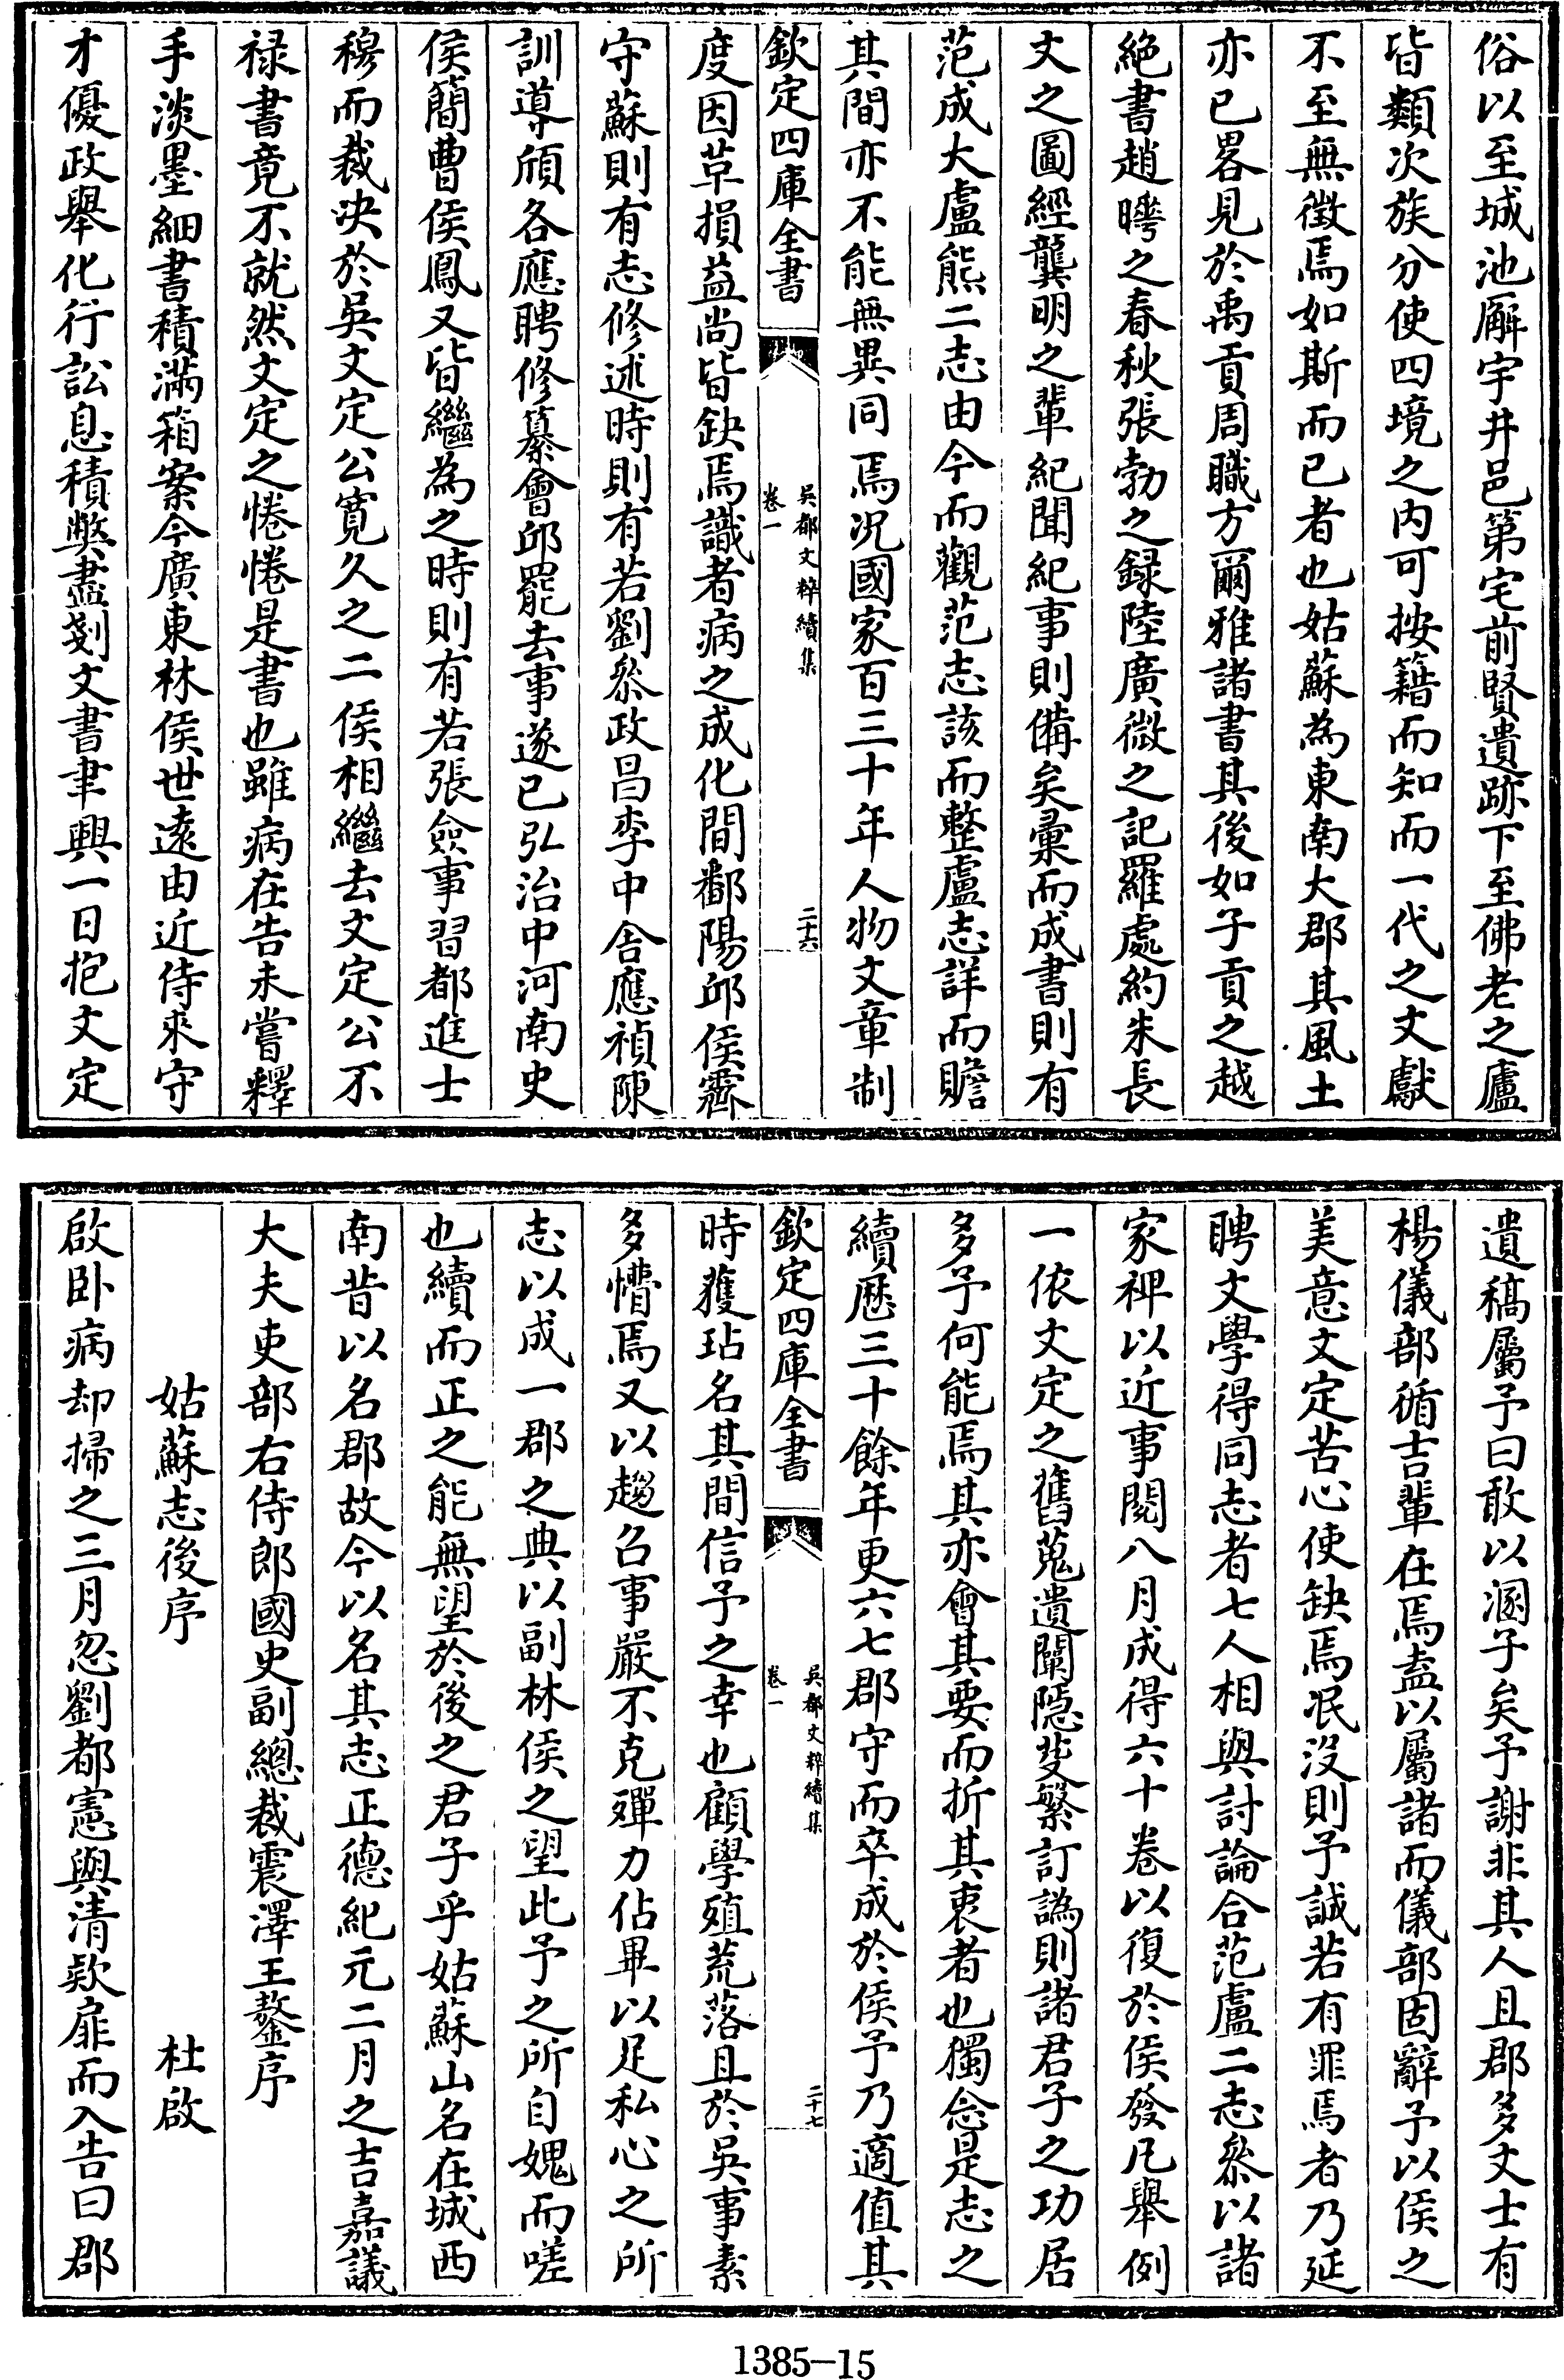 俗以至城池廨宇井邑第宅前賢遺跡下至佛老之廬
皆類次族分使四境之内可按籍而知而一代之文獻
不至無徵焉如斯而已者也姑蘇為東南大郡其風土
亦已畧見於禹貢周職方爾雅諸書其後如子貢之越
絶書趙曄之春秋張勃之録陸廣微之記羅處約朱長
文之圖經龔明之輩紀聞紀事則備矣彚而成書則有
范成大盧熊二志由今而觀范志該而整盧志詳而贍
其間亦不能無異同焉况國家百三十年人物文章制
欽定四庫全書
吳都文粹續集
卷一
二十六
度因革損益尚皆缺焉識者病之成化間鄱陽邱侯霽
守蘇則有志修述時則有若劉叅政昌李中舍應禎陳
訓導頎各應聘修纂會邱罷去事遂已弘治中河南史
侯簡曹侯鳳又皆繼為之時則有若張僉事習都進士
穆而裁决於吳文定公寛久之二侯相繼去文定公不
禄書竟不就然文定之惓惓是書也雖病在告未嘗釋
手淡墨細書積滿箱案今廣東林侯世遠由近侍來守
才優政舉化行訟息積弊盡剗文書聿興一日抱文定
遺稿屬予曰敢以溷子矣予謝非其人且郡多文士有
楊儀部循吉輩在焉盍以屬諸而儀部固辭予以侯之
美意文定苦心使缺焉泯没則予誠若有罪焉者乃延
聘文學得同志者七人相與討論合范盧二志叅以諸
家裨以近事閱八月成得六十卷以復於侯發凡舉例
一依文定之舊蒐遺闡隱芟繁訂譌則諸君子之功居
多予何能焉其亦會其要而折其衷者也獨念是志之
續歴三十餘年更六七郡守而卒成於侯予乃適值其
欽定四庫全書
吳都文粹續集
卷一
二十七
時獲玷名其間信予之幸也顧學殖荒落且於吳事素
多懵焉又以趨召事嚴不克殫力佔畢以足私心之所
志以成一郡之典以副林侯之望此予之所自媿而嗟
也續而正之能無望於後之君子乎姑蘇山名在城西
南昔以名郡故今以名其志正德紀元二月之吉嘉議
大夫吏部右侍郎國史副總裁震澤王鏊序
姑蘇志後序 杜啟
啟卧病却掃之三月忽劉都憲與清欵扉而入告曰郡
1385-15